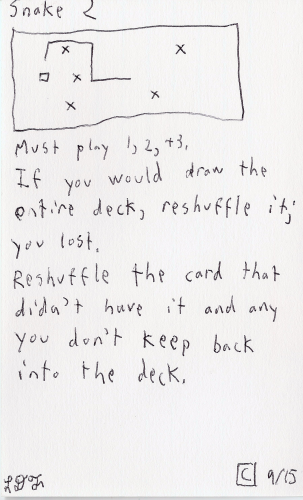 Snake 2
Must play 1, 2, +3.
If you would draw the
entire deck, reshuffle it;
you lost.
Reshuffle the card that
didn't have it and any
you don't keep back
into the deck.
C 9/15